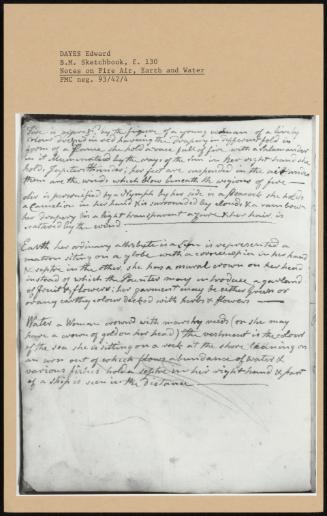 DAYES Edward
B.M. Sketchbook, f. 130
Notes on Fire Air, Earth and Water
PMC neg. 93/42/4
Fire is by the figure of a young woman of a lively
colour dressed in red having the drapery in
form of a flame, she holds a vase full of fire with a Salamander
in it Illuminated by the rays of the Sun in her right hand she
holds Jupiters thunder; her feet are suspended in the air
them are the winds which blow beneath the regions of fire
Air is personified by a Nymph by her side is a Peacock she holds
a Camelion in her hand & is surrounded by clouds & a rainbow
her drapery is a light transparent azure & her hair is
scattered by the wind
Earth her ordinary attribute is a Lion is represented a
matron siting on a globe with a cornucopia in her hand
& septre in the other. she has a mural crown on her head
instead of which the Painter may introduce a garland
of fruit & flowers; her garment may be either green or
orang earthy colour decked with herbs & flowers
Water a Woman crownd with marshy reeds (or she may
have a crown of gold on her head) the vestment is the colour
of the sea she is sitting on a rock at the shore leaning on
an urn out of which flows abundance of water &
various fishes holds a septre in her right hand & part
of a Ship is seen in the distance